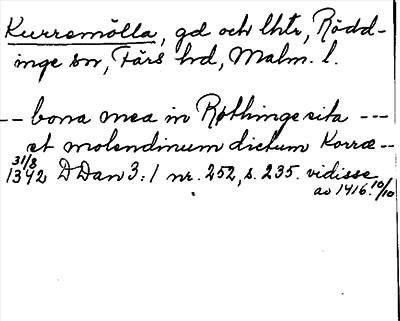 Kurremölla, gd och lhtr, Rödd-
inge sn, Färs hd, Malm. l.
-- bona mea in Røthinge sita ---
et molendinum dictum Korræ--
31/8 1342 DDan 3:1 nr. 252, s. 235. vidisse
av 1416.10/10